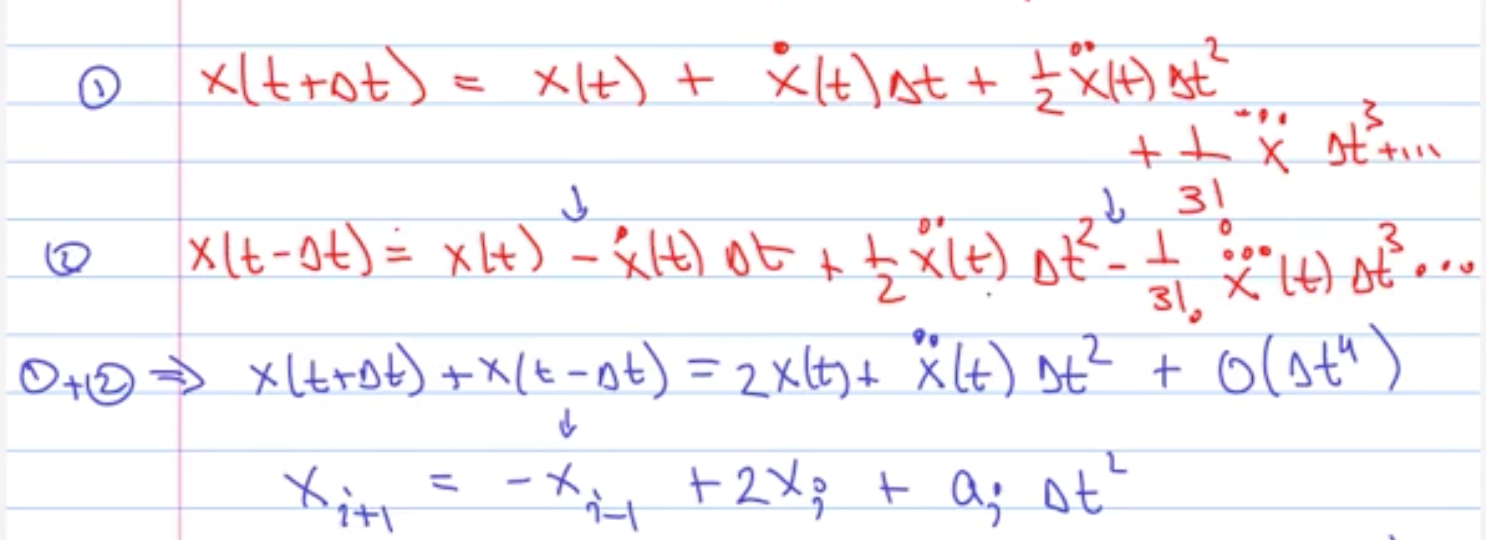 ① x(t+Δt) = x(t) + ẋ(t)Δt + ½ẍ(t)Δt²
+ 1/3! x⃛ Δt³+...
② x(t-Δt) = x(t) - ẋ(t) Δt + ½ẍ(t) Δt² - 1/3! x⃛(t) Δt³...
①+② ⇒ x(t+Δt) + x(t-Δt) = 2x(t) + ẍ(t) Δt² + O(Δt⁴)
x_{i+1} = -x_{i-1} + 2x_i + a_i Δt²